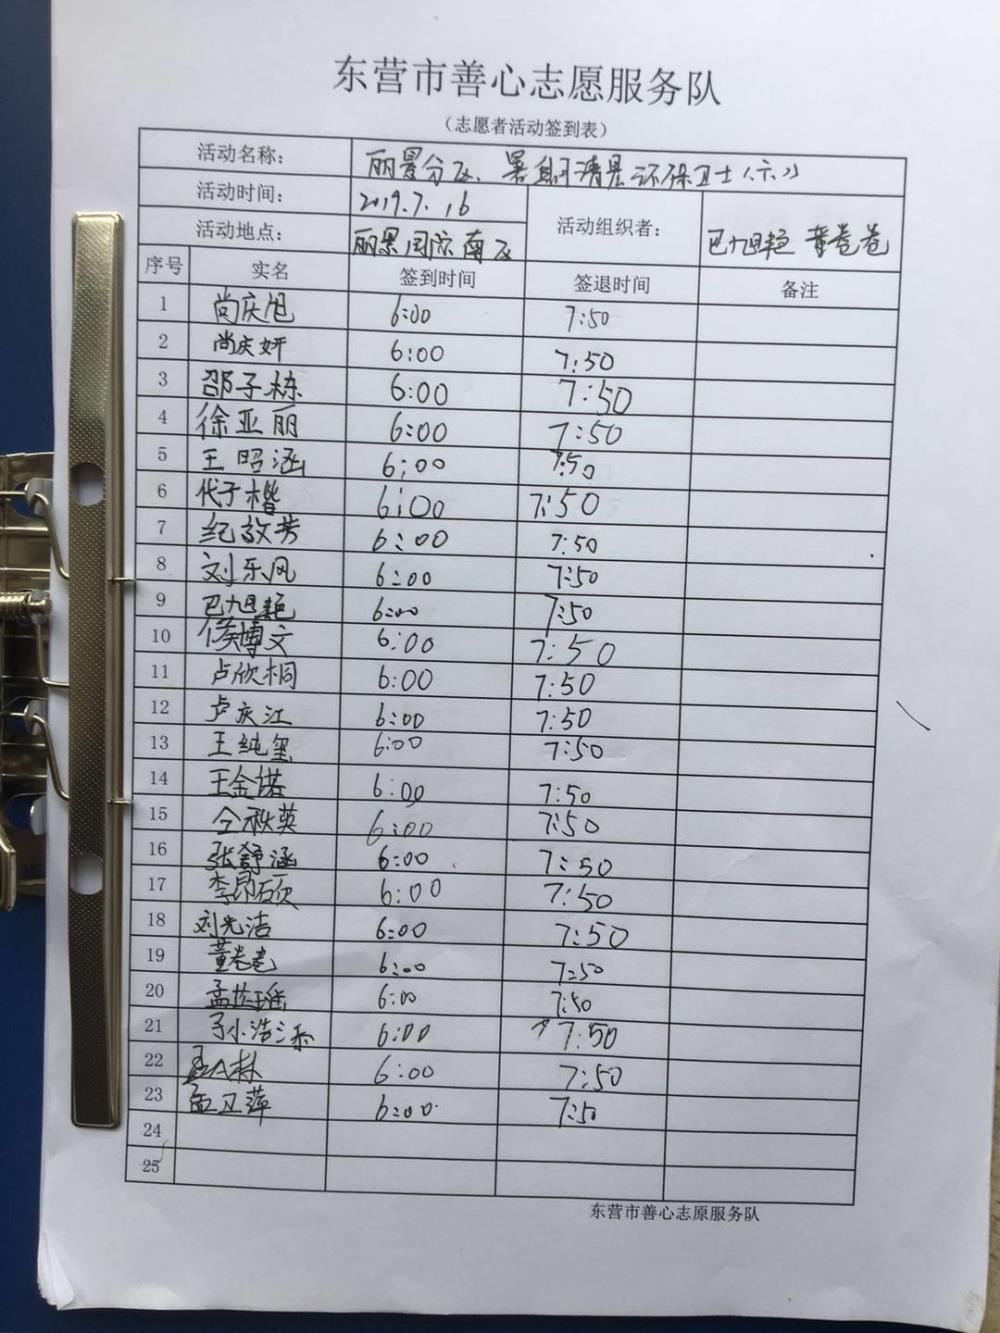 东营市善心志愿服务队
（志愿者活动签到表）
活动名称： 丽景分队、暑期清晨环保卫士（六）
活动时间： 2019.7.16
活动地点： 丽景国际南区 活动组织者： 巴旭艳 董卷卷
序号 实名 签到时间 签退时间 备注
1 尚庆旭 6:00 7:50
2 尚庆妍 6:00 7:50
3 邵子栋 6:00 7:50
4 徐亚丽 6:00 7:50
5 王昭涵 6:00 7:50
6 代子楷 6:00 7:50
7 纪敬芳 6:00 7:50
8 刘东风 6:00 7:50
9 巴旭艳 6:00 7:50
10 侯博文 6:00 7:50
11 卢欣桐 6:00 7:50
12 卢庆江 6:00 7:50
13 王纯玺 6:00 7:50
14 王金诺 6:00 7:50
15 仝秋英 6:00 7:50
16 张舒涵 6:00 7:50
17 李昂硕 6:00 7:50
18 刘光洁 6:00 7:50
19 董卷卷 6:00 7:50
20 6:00 7:50
21 6:00 7:50
22 6:00 7:50
23 孟卫萍 6:00 7:50
24
25
东营市善心志原服务队